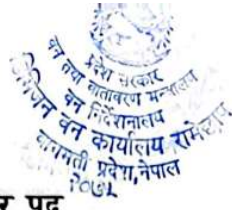 प्रदेश सरकार
वन तथा वातावरण मन्त्रालय
वन निर्देशनालय
डिभिजन वन कार्यालय रामेछाप
बागमती प्रदेश, नेपाल